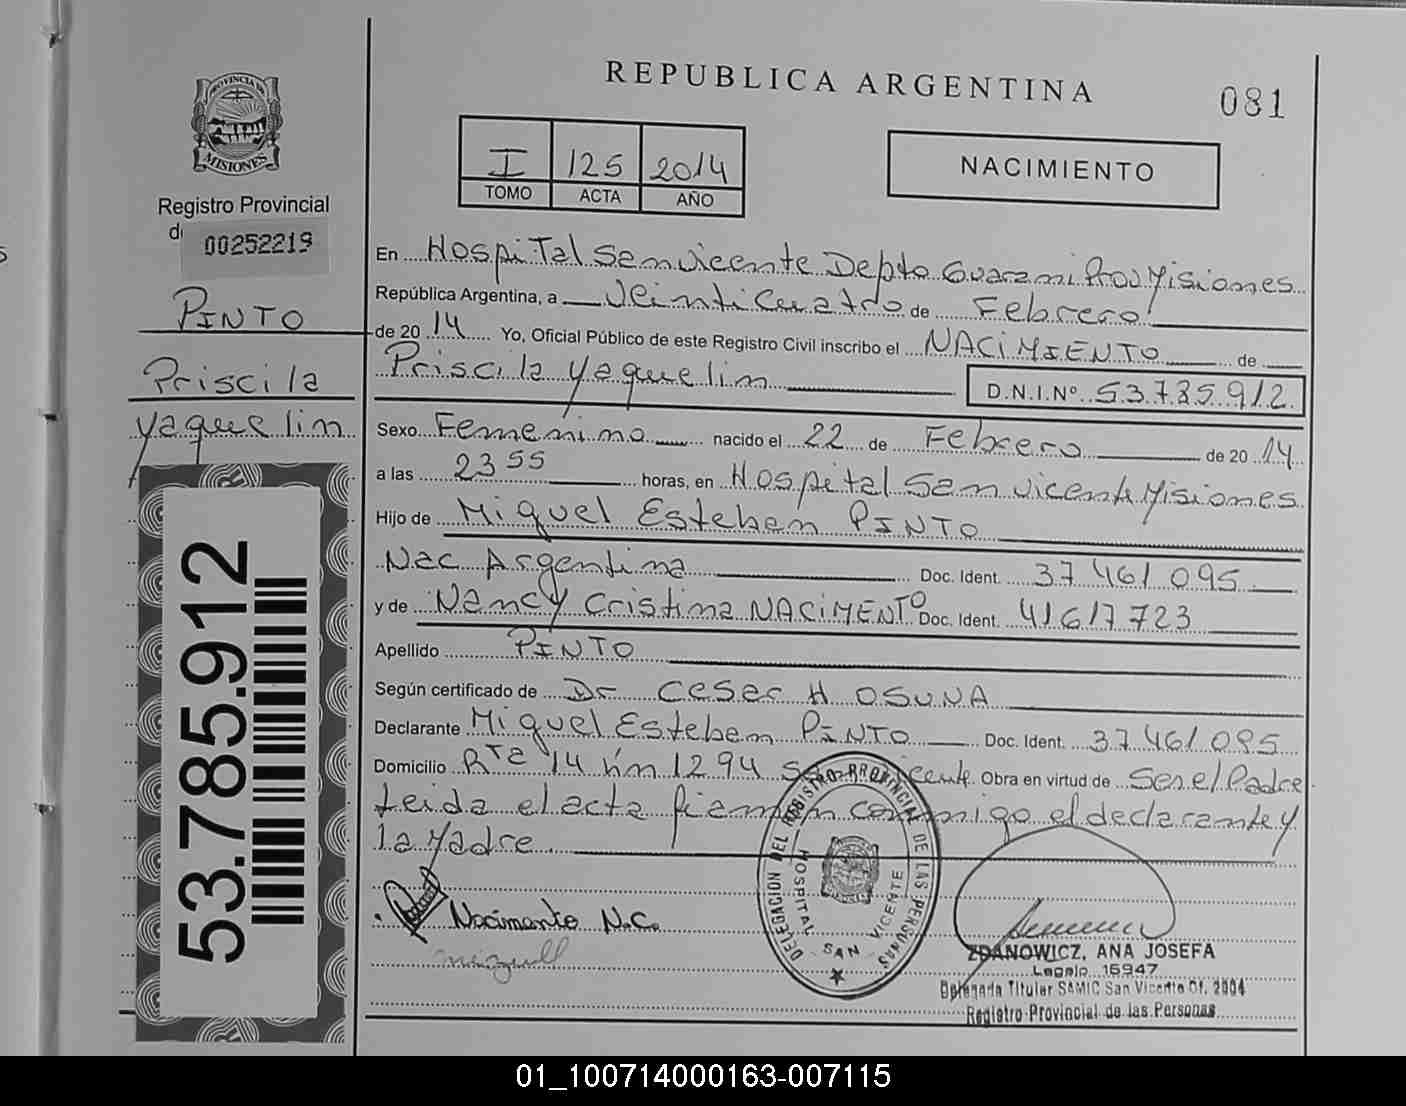 REPUBLICA ARGENTINA
081
PROVINCIA DE
MISIONES
Registro Provincial
00252219
PINTO
Priscila
Yaquelin
53.785.912
I 125 2014
TOMO ACTA AÑO
NACIMIENTO
En Hospital San Vicente Depto Guarani Prov Misiones
República Argentina, a Veinticuatro de Febrero
de 20 14 Yo, Oficial Público de este Registro Civil inscribo el NACIMIENTO de
Priscila Yaquelin D.N.I.Nº 53.785.912
Sexo Femenino nacido el 22 de Febrero de 20 14
a las 23 55 horas, en Hospital San Vicente Misiones
Hijo de Miguel Esteban PINTO
Nac Argentina Doc. Ident. 37 461 095
y de Nancy Cristina NACIMENTO Doc. Ident. 41617723
Apellido PINTO
Según certificado de Dr Cesar H OSUNA
Declarante Miguel Esteban PINTO Doc. Ident. 37461095
Domicilio Rta 14 km 1294 San Vicente Obra en virtud de Ser el Padre
Leida el acta firman conmigo el declarante y
la Madre
Nacimento N.C.
DELEGACION DEL REGISTRO PROVINCIAL DE LAS PERSONAS
HOSPITAL SAN VICENTE
ZDANOWICZ, ANA JOSEFA
Legajo 16947
Delegada Titular SAMIC San Vicente Of. 2904
Registro Provincial de las Personas
01_100714000163-007115